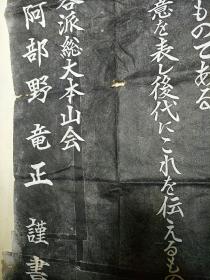 ものである
意を表し後代にこれを伝えるもの
各派総大本山会
阿部野竜正謹書